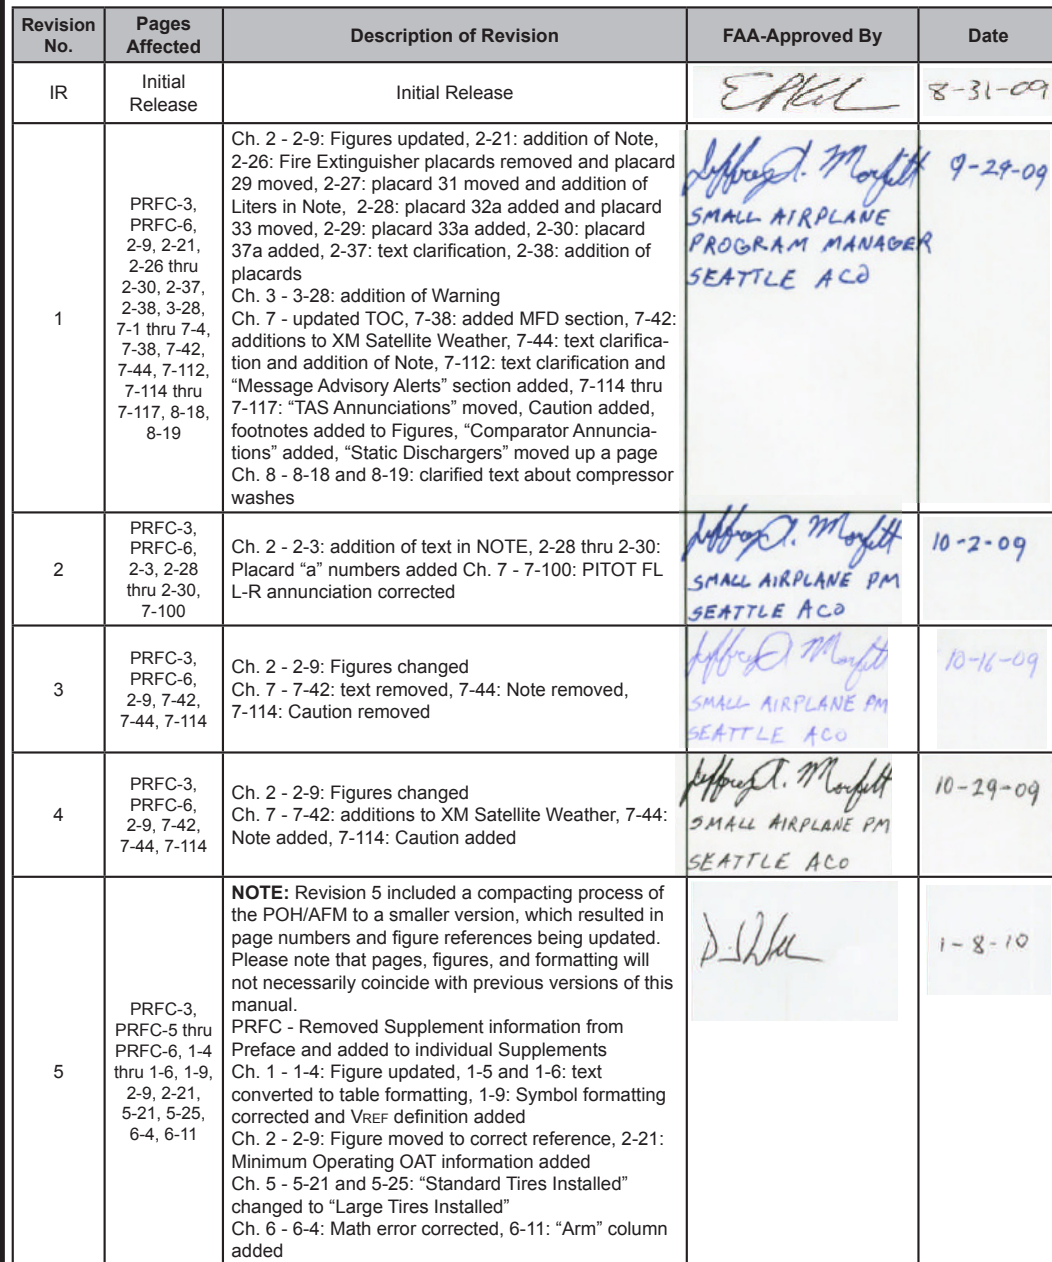 Revision No.
Pages Affected
Description of Revision
FAA-Approved By
Date
IR
Initial
Release
Initial Release
8-31-09
1
PRFC-3,
PRFC-6,
2-9, 2-21,
2-26 thru
2-30, 2-37,
2-38, 3-28,
7-1 thru 7-4,
7-38, 7-42,
7-44, 7-112,
7-114 thru
7-117, 8-18,
8-19
Ch. 2 - 2-9: Figures updated, 2-21: addition of Note,
2-26: Fire Extinguisher placards removed and placard
29 moved, 2-27: placard 31 moved and addition of
Liters in Note, 2-28: placard 32a added and placard
33 moved, 2-29: placard 33a added, 2-30: placard
37a added, 2-37: text clarification, 2-38: addition of
placards
Ch. 3 - 3-28: addition of Warning
Ch. 7 - updated TOC, 7-38: added MFD section, 7-42:
additions to XM Satellite Weather, 7-44: text clarifica-
tion and addition of Note, 7-112: text clarification and
“Message Advisory Alerts” section added, 7-114 thru
7-117: “TAS Annunciations” moved, Caution added,
footnotes added to Figures, “Comparator Annuncia-
tions” added, “Static Dischargers” moved up a page
Ch. 8 - 8-18 and 8-19: clarified text about compressor
washes
Jeffrey A. Morfitt
SMALL AIRPLANE
PROGRAM MANAGER
SEATTLE ACO
9-29-09
2
PRFC-3,
PRFC-6,
2-3, 2-28
thru 2-30,
7-100
Ch. 2 - 2-3: addition of text in NOTE, 2-28 thru 2-30:
Placard “a” numbers added Ch. 7 - 7-100: PITOT FL
L-R annunciation corrected
Jeffrey A. Morfitt
SMALL AIRPLANE PM
SEATTLE ACO
10-2-09
3
PRFC-3,
PRFC-6,
2-9, 7-42,
7-44, 7-114
Ch. 2 - 2-9: Figures changed
Ch. 7 - 7-42: text removed, 7-44: Note removed,
7-114: Caution removed
Jeffrey A. Morfitt
SMALL AIRPLANE PM
SEATTLE ACO
10-16-09
4
PRFC-3,
PRFC-6,
2-9, 7-42,
7-44, 7-114
Ch. 2 - 2-9: Figures changed
Ch. 7 - 7-42: additions to XM Satellite Weather, 7-44:
Note added, 7-114: Caution added
Jeffrey A. Morfitt
SMALL AIRPLANE PM
SEATTLE ACO
10-29-09
5
PRFC-3,
PRFC-5 thru
PRFC-6, 1-4
thru 1-6, 1-9,
2-9, 2-21,
5-21, 5-25,
6-4, 6-11
NOTE: Revision 5 included a compacting process of
the POH/AFM to a smaller version, which resulted in
page numbers and figure references being updated.
Please note that pages, figures, and formatting will
not necessarily coincide with previous versions of this
manual.
PRFC - Removed Supplement information from
Preface and added to individual Supplements
Ch. 1 - 1-4: Figure updated, 1-5 and 1-6: text
converted to table formatting, 1-9: Symbol formatting
corrected and VREF definition added
Ch. 2 - 2-9: Figure moved to correct reference, 2-21:
Minimum Operating OAT information added
Ch. 5 - 5-21 and 5-25: “Standard Tires Installed”
changed to “Large Tires Installed”
Ch. 6 - 6-4: Math error corrected, 6-11: “Arm” column
added
1-8-10